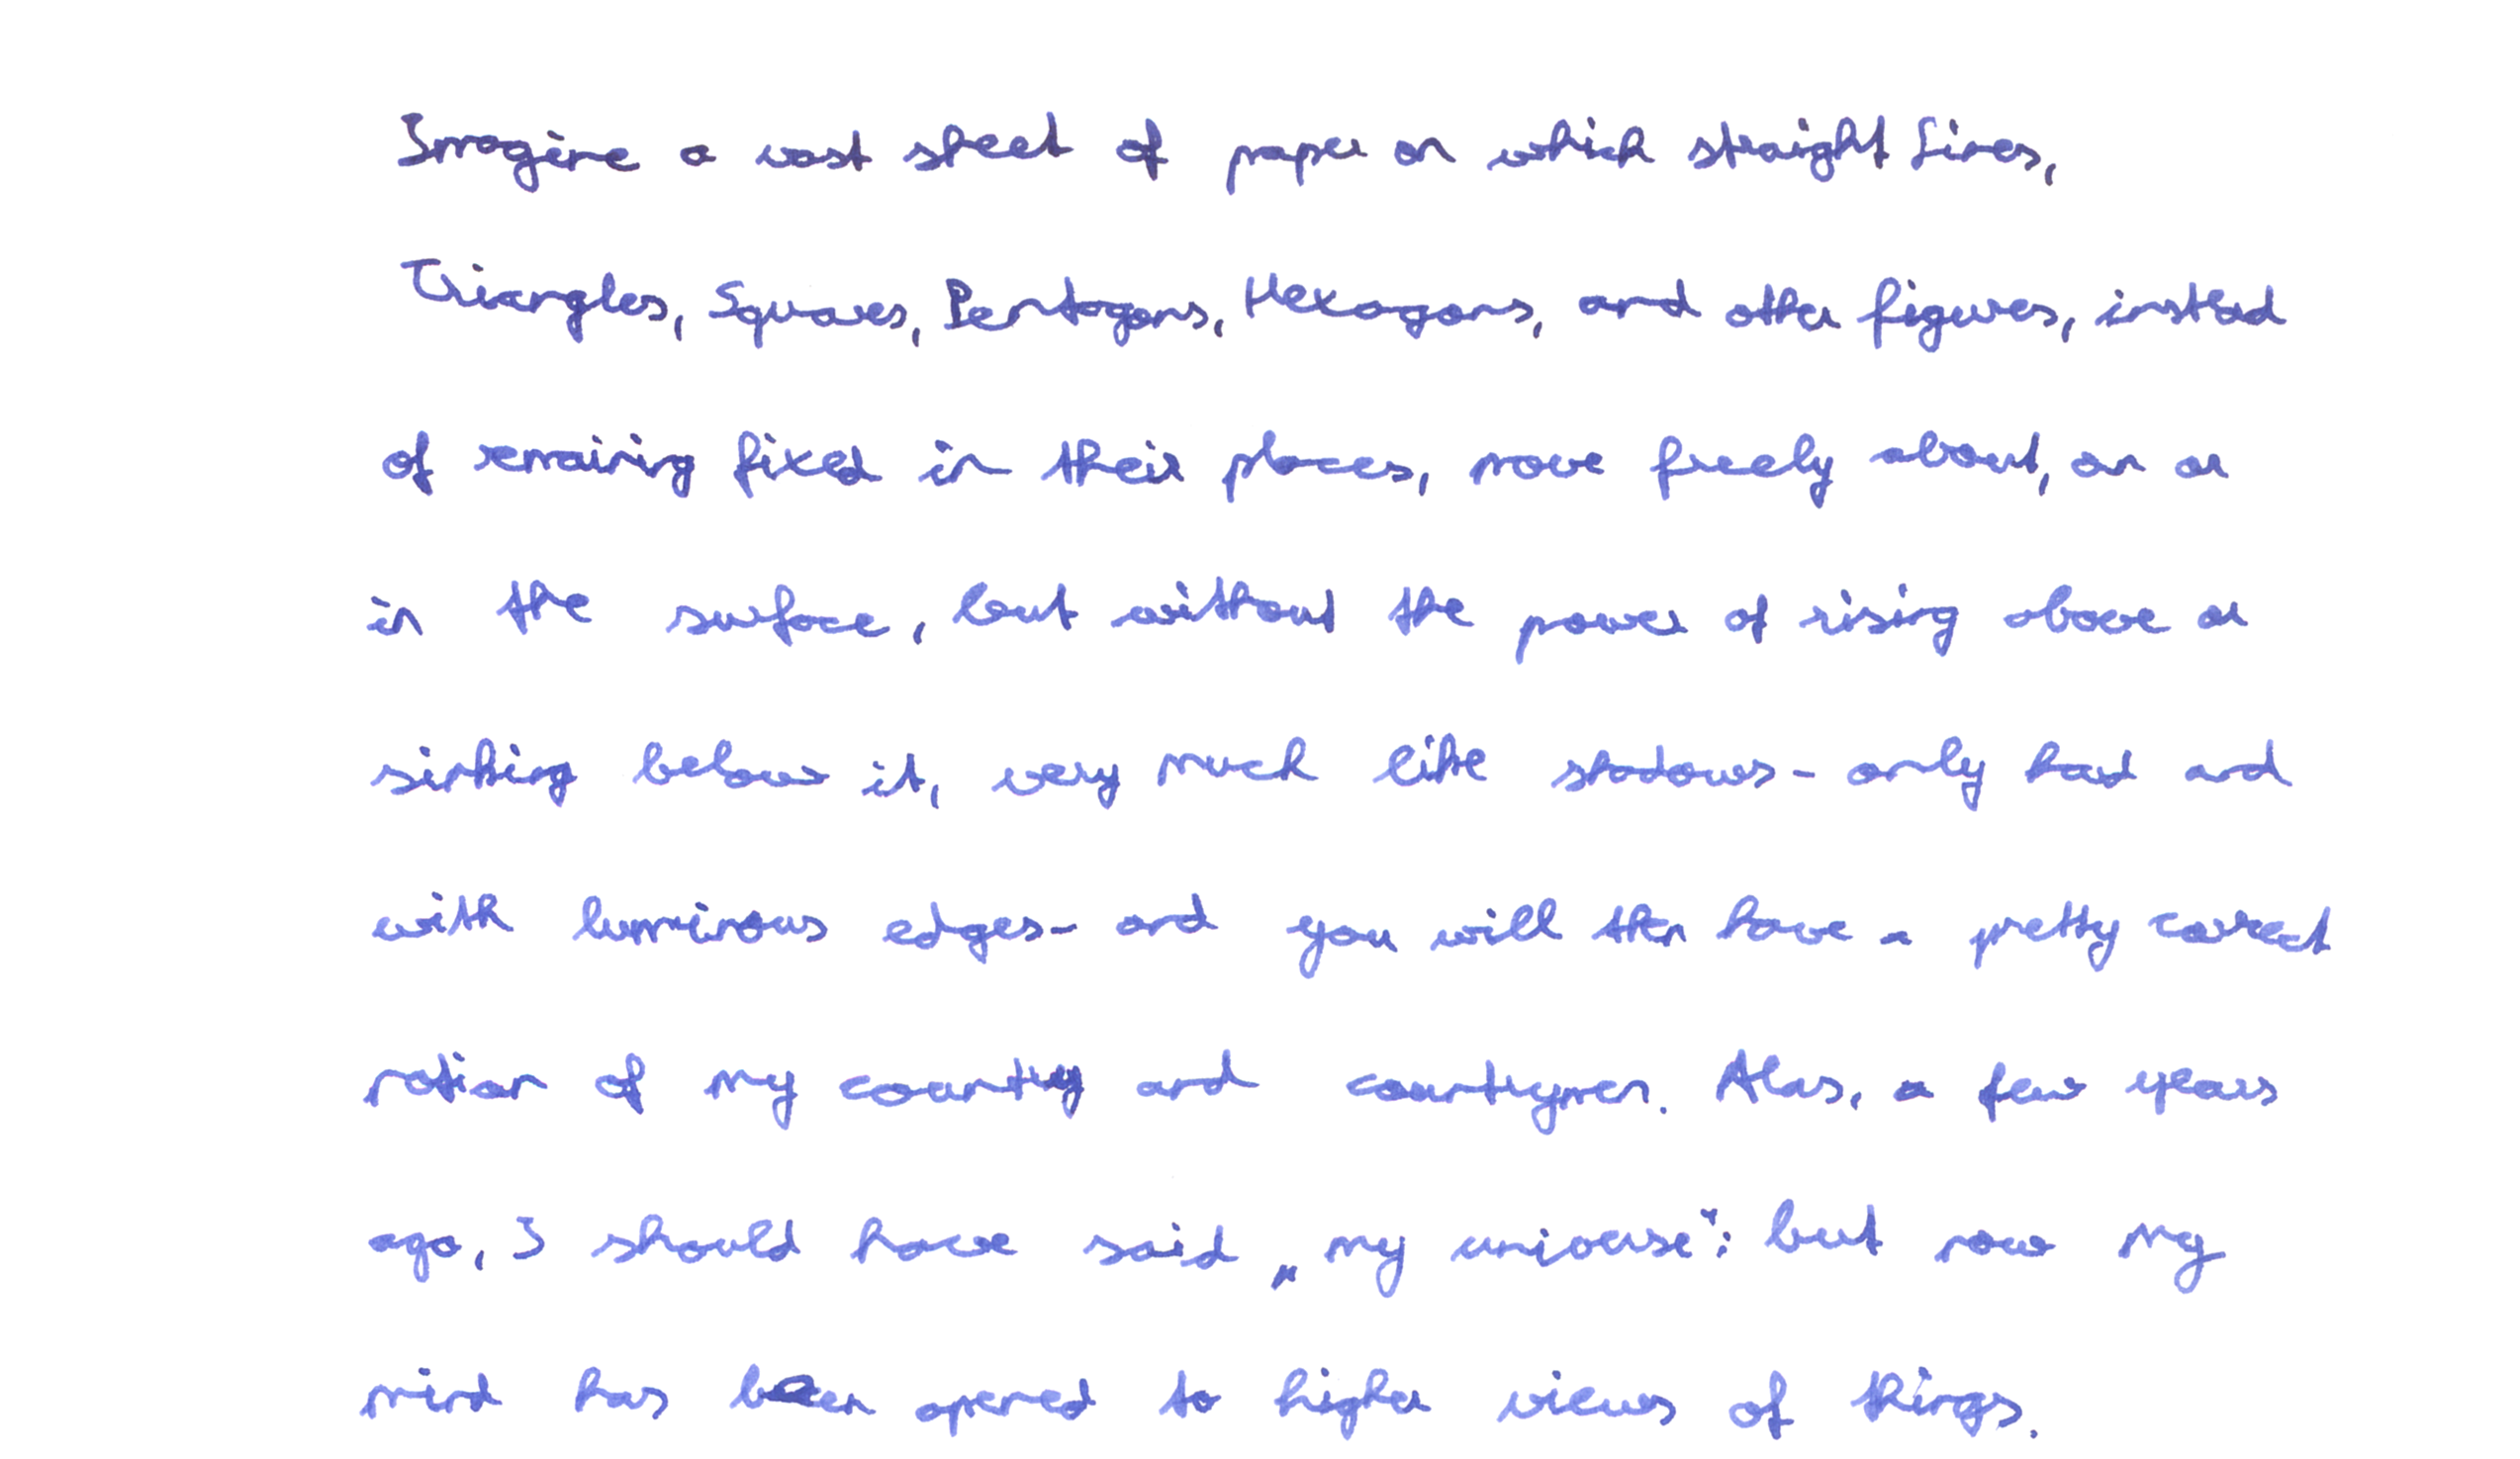 Imagine a vast sheet of paper on which straight Lines,
Triangles, Squares, Pentagons, Hexagons, and other figures, instead
of remaining fixed in their places, move freely about, on or
in the surface, but without the power of rising above or
sinking below it, very much like shadows - only hard and
with luminous edges - and you will then have a pretty correct
notion of my country and countrymen. Alas, a few years
ago, I should have said „my universe“: but now my
mind has been opened to higher views of things.